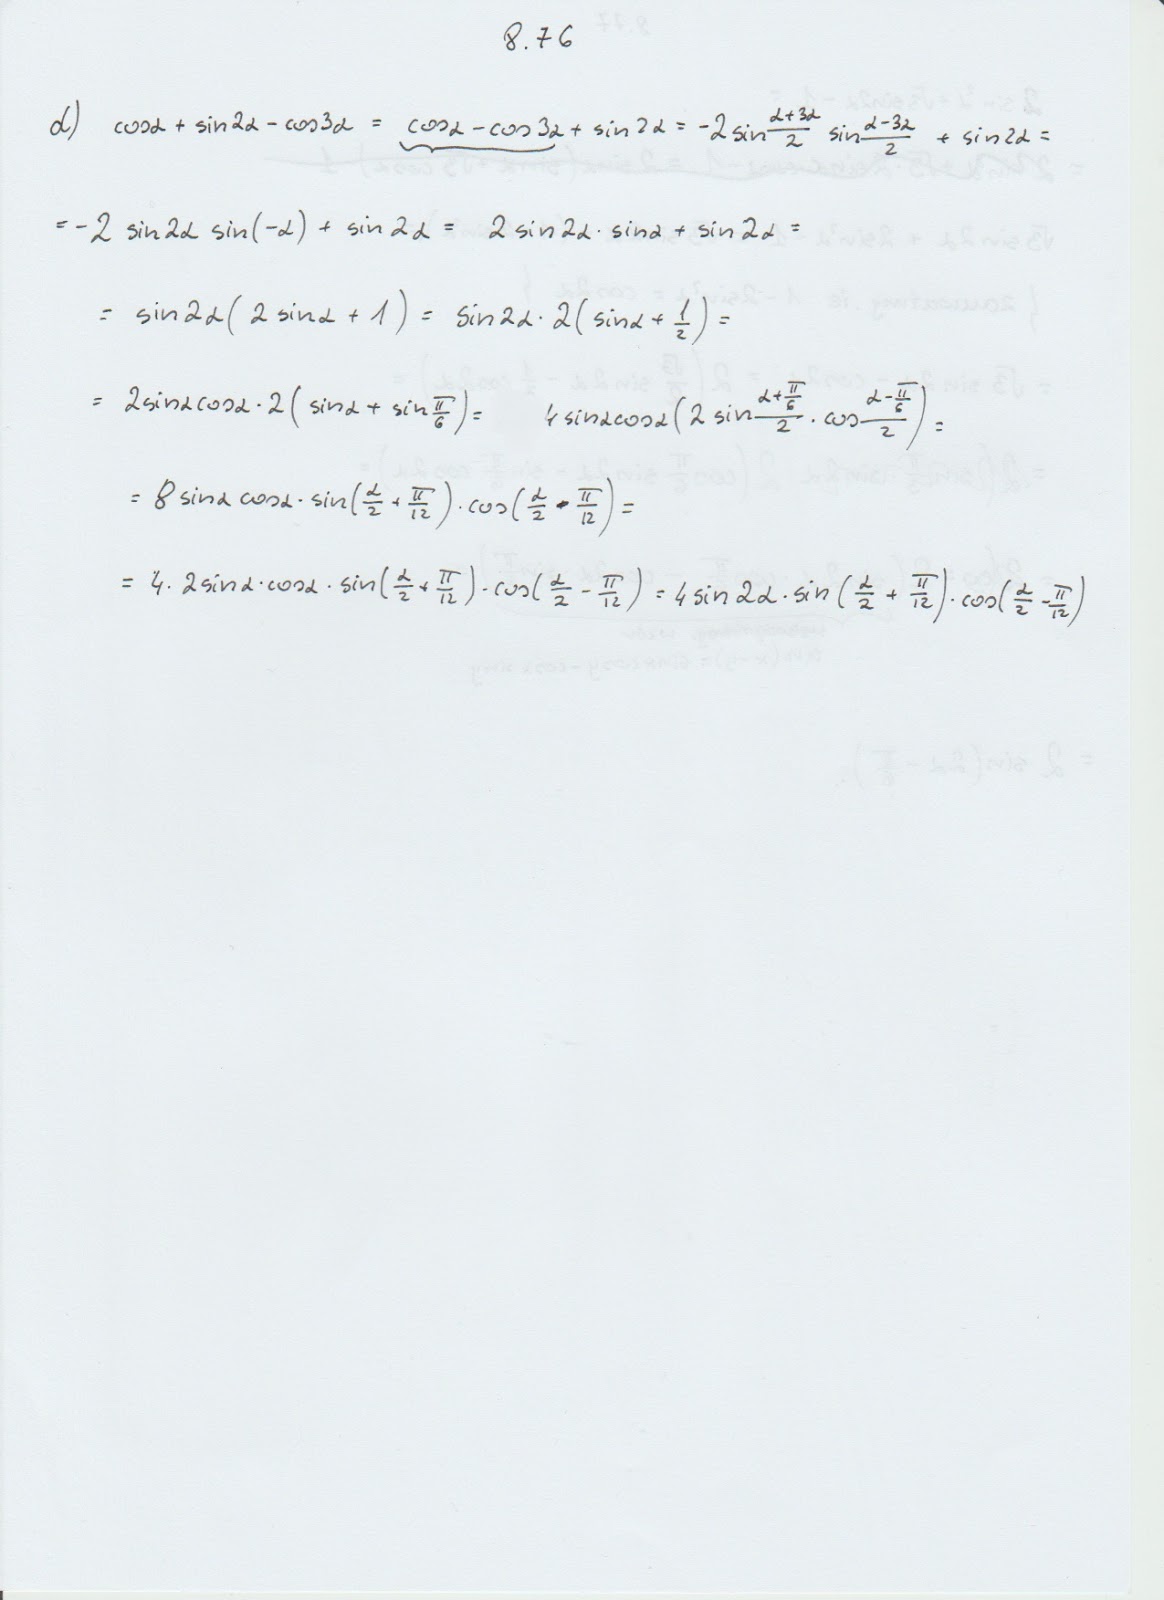 8.76
d) cosα + sin2α - cos3α = cosα - cos3α + sin2α = -2sin (α+3α)/2 sin (α-3α)/2 + sin2α =
= -2 sin2α sin(-α) + sin2α = 2 sin2α · sinα + sin2α =
= sin2α(2 sinα + 1) = sin2α · 2(sinα + 1/2) =
= 2sinαcosα · 2(sinα + sin π/6) = 4sinαcosα(2 sin (α+π/6)/2 · cos (α-π/6)/2) =
= 8 sinα cosα · sin(α/2 + π/12) · cos(α/2 - π/12) =
= 4 · 2sinα · cosα · sin(α/2 + π/12) · cos(α/2 - π/12) = 4 sin2α · sin(α/2 + π/12) · cos(α/2 - π/12)